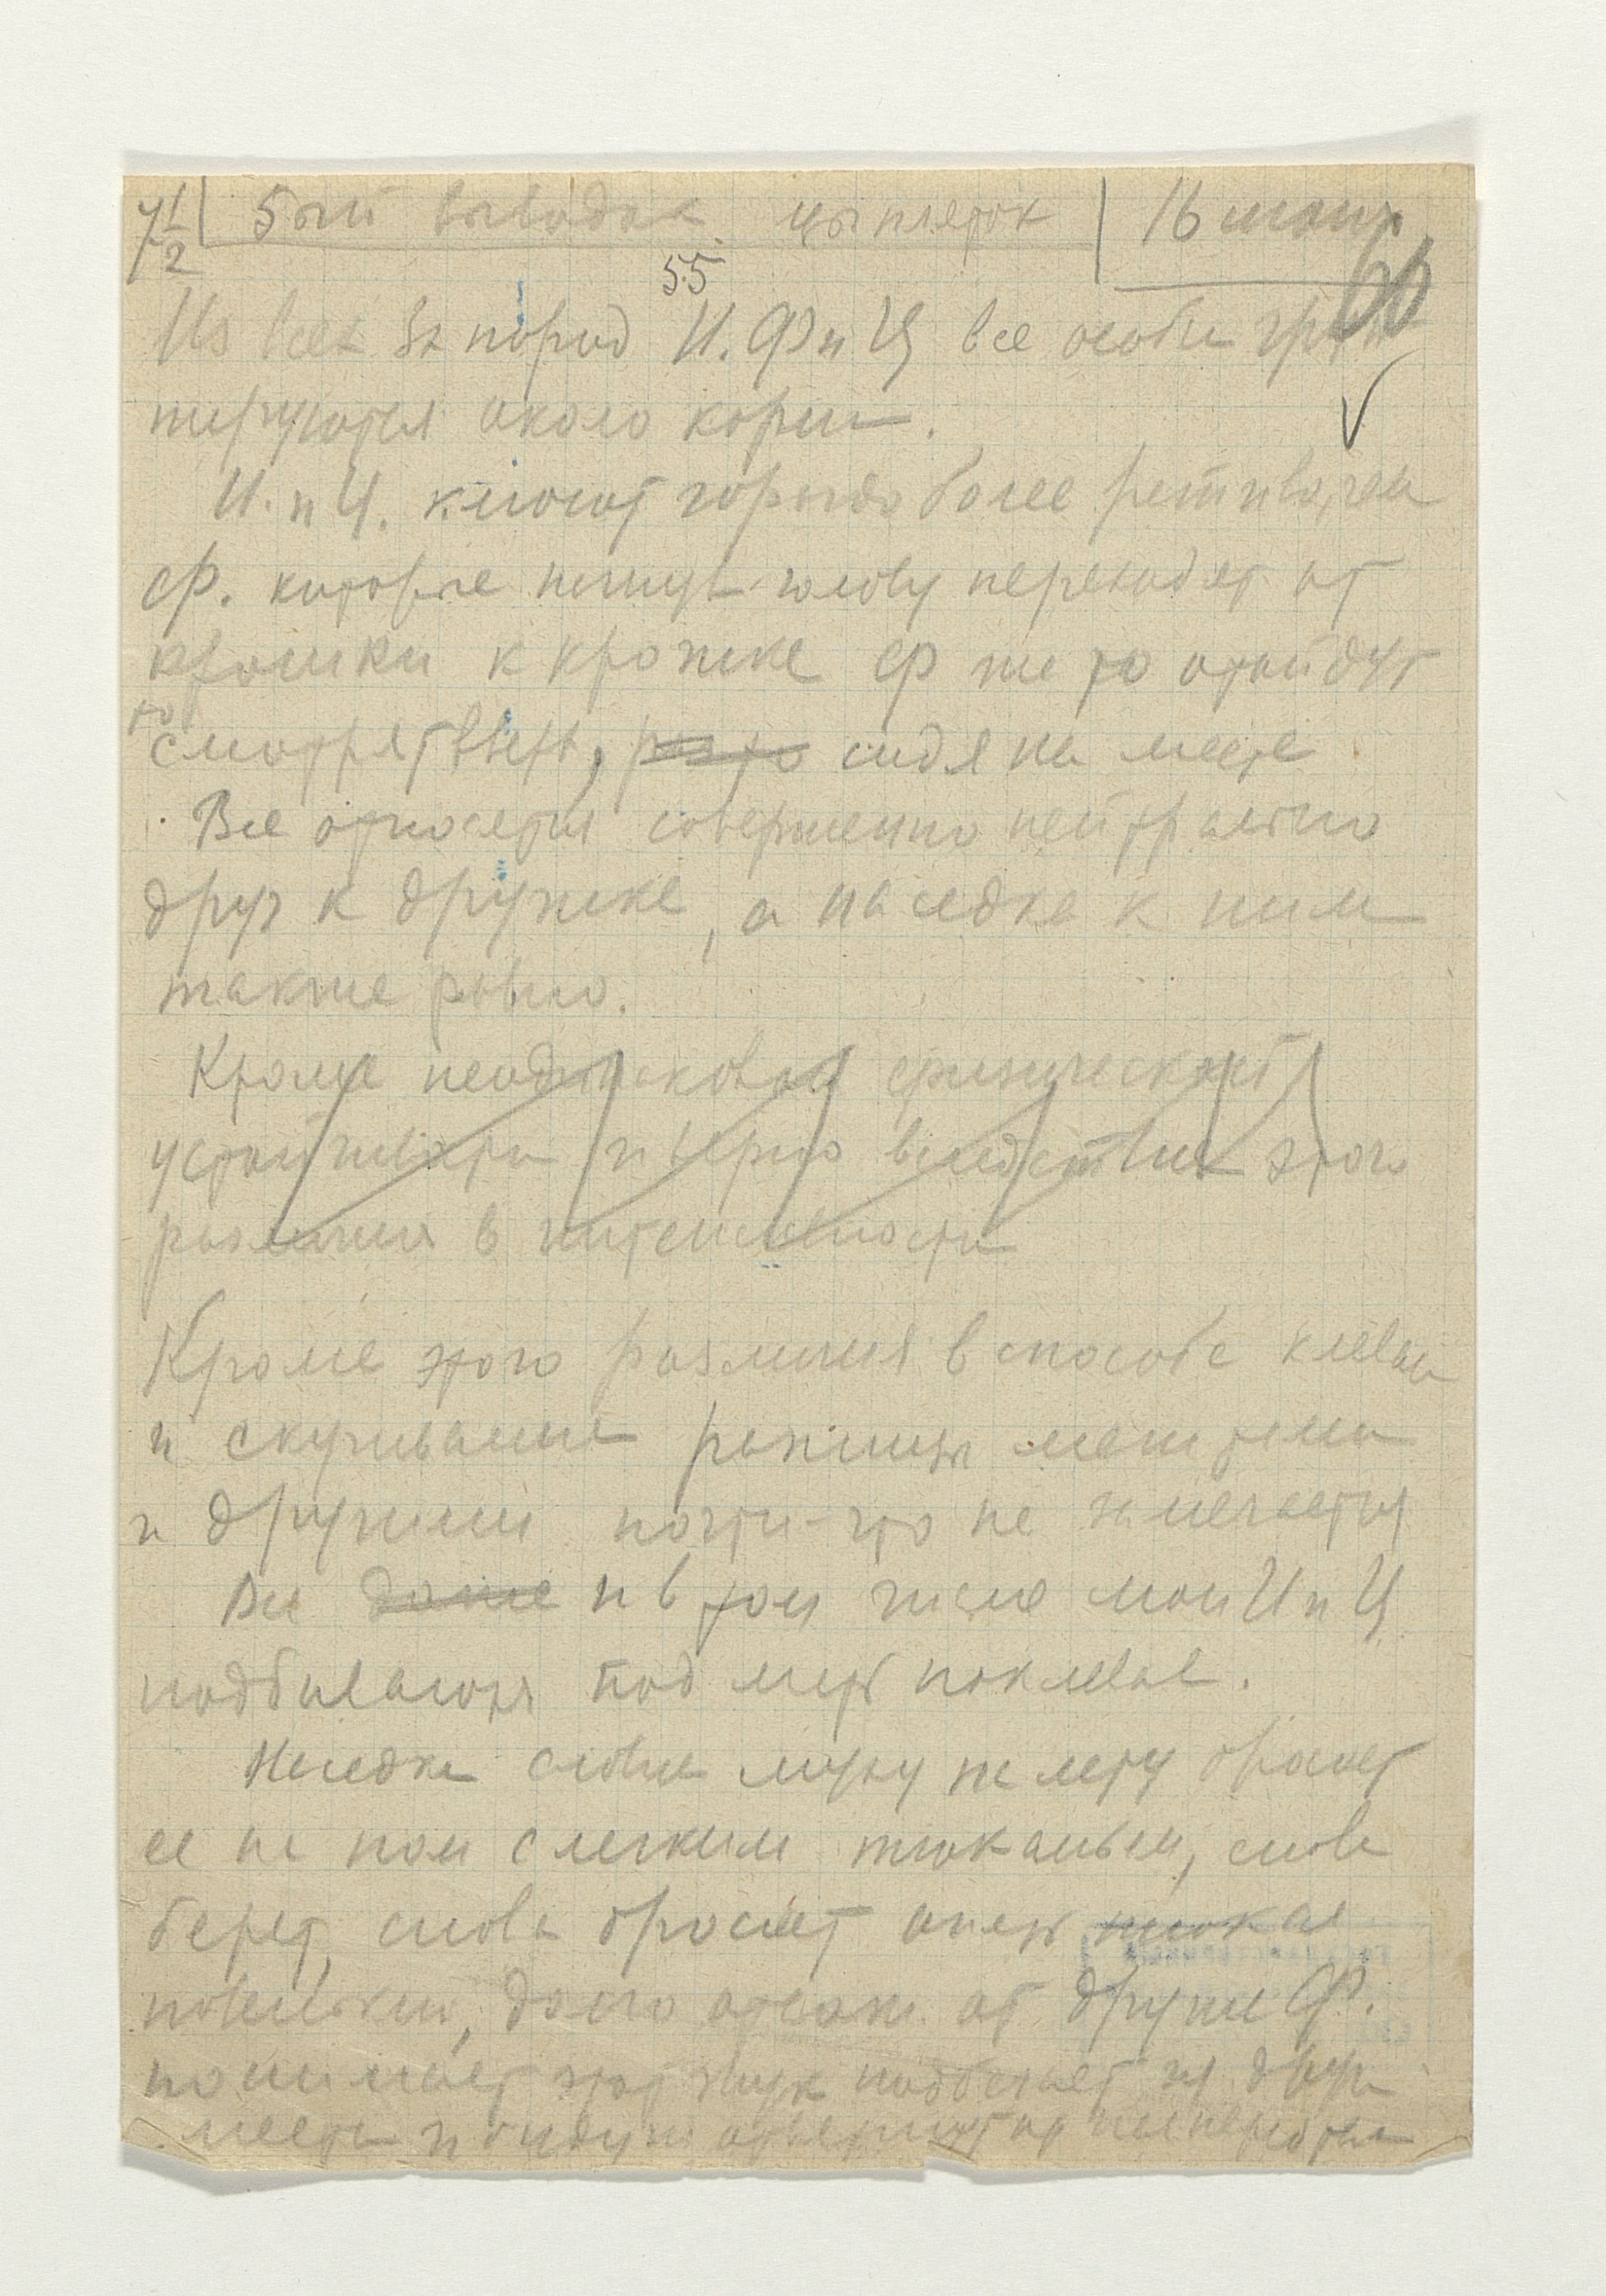 7 1/2 | 5ый выводок цыпляток | 16 июня
66
55
Из всех 3х пород И. Ф и Ц все особи груп-
пируются около корма.
И. и Ц. клюют гораздо более ретиво, чем
Ф. которые голову переходят от
крошки к крошке Ф же то отойдут
то
смотрят вверх, сидя на месте
Все относятся совершенно нейтрально
друг к дружке, а наседка к ним
также ровно.
Кроме неодинаковой физической
устойчивости и верно вследствии этого
различия в интенсивности
Кроме этого различия в способе клева
и скучивания разницы меж теми
и другими почти-что не замечается
Все даже и в том числе мои И и Ц
подбиваются под мать поклевав.
Наседка словив муху на лету бросает
ее на пол с легким тюканьем, снова
берет, снова бросает опять тюкая
долго от других Ф.
понимает этот звук подбегает
места и